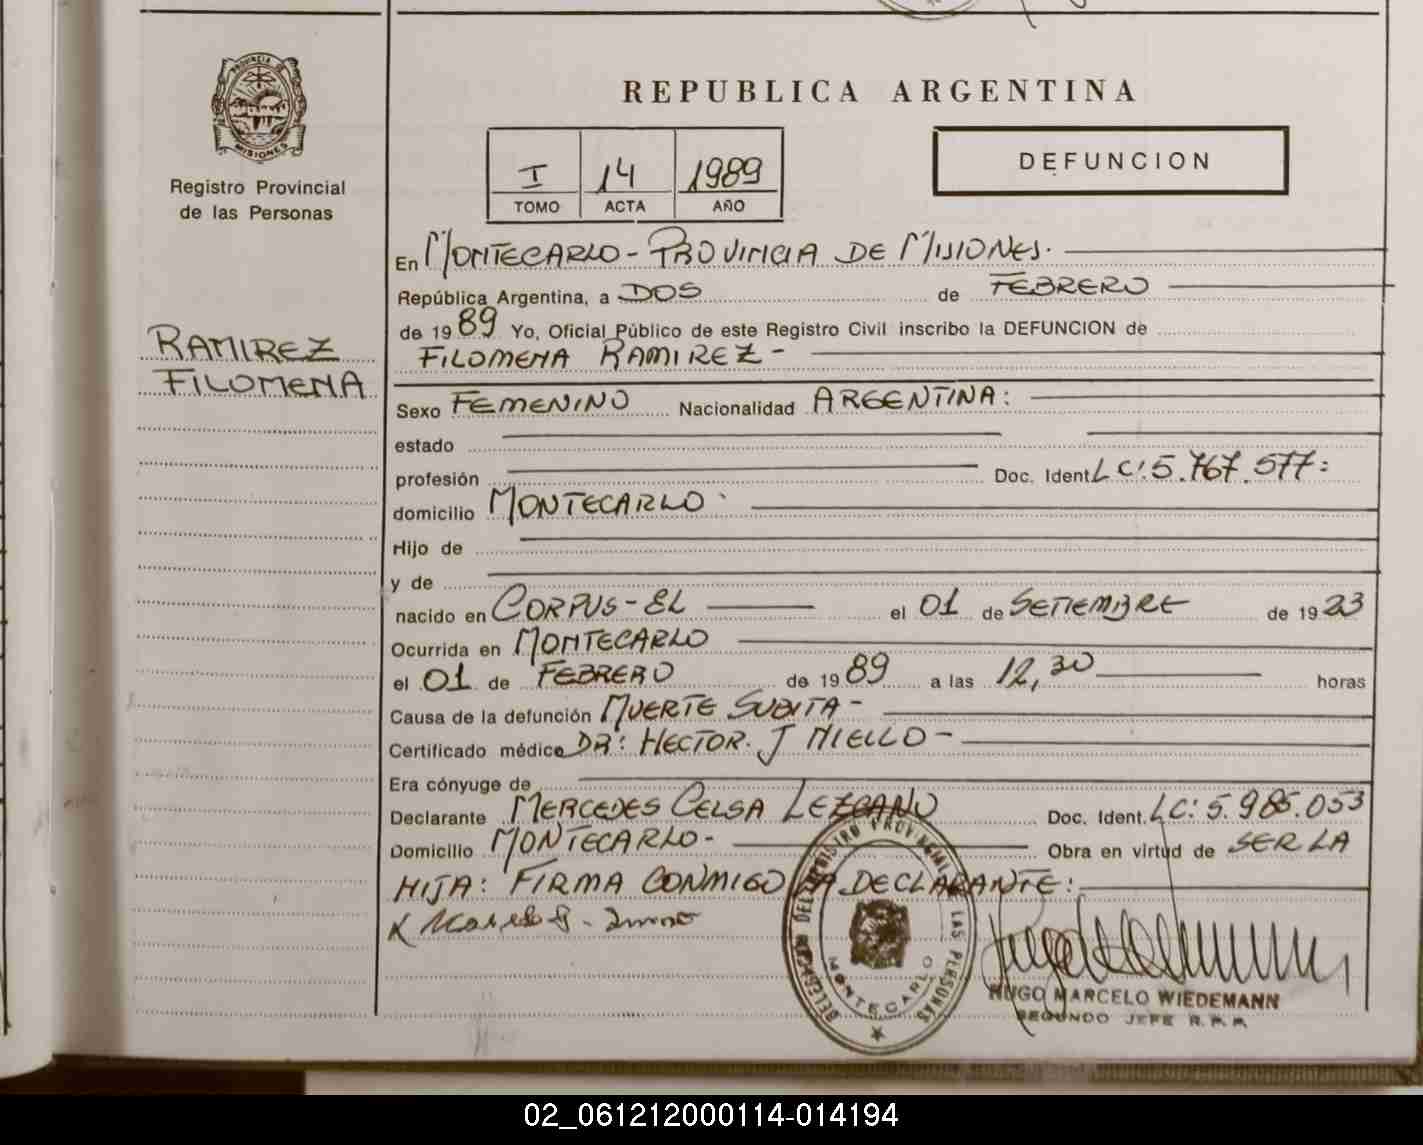 PROVINCIA DE
MISIONES
Registro Provincial
de las Personas
RAMIREZ
FILOMENA
REPUBLICA ARGENTINA
I 14 1989
TOMO ACTA AÑO
DEFUNCION
En MONTECARLO - PROVINCIA DE MISIONES.
República Argentina, a DOS de FEBRERO
de 1989 Yo, Oficial Público de este Registro Civil inscribo la DEFUNCION de
FILOMENA RAMIREZ -
Sexo FEMENINO Nacionalidad ARGENTINA:
estado
profesión Doc. Ident. LC: 5.767.577:
domicilio MONTECARLO
Hijo de
y de
nacido en CORPUS - EL el 01 de SETIEMBRE de 1923
Ocurrida en MONTECARLO
el 01 de FEBRERO de 1989 a las 12,30 horas
Causa de la defunción MUERTE SUBITA -
Certificado médico DR: HECTOR. J NIELLO -
Era cónyuge de
Declarante MERCEDES CELSA LEZCANO Doc. Ident. LC: 5.985.053
Domicilio MONTECARLO - Obra en virtud de SER LA
HIJA: FIRMA CONMIGO LA DECLARANTE:
MONTECARLO
HUGO MARCELO WIEDEMANN
SEGUNDO JEFE R. P. P.
02_061212000114-014194